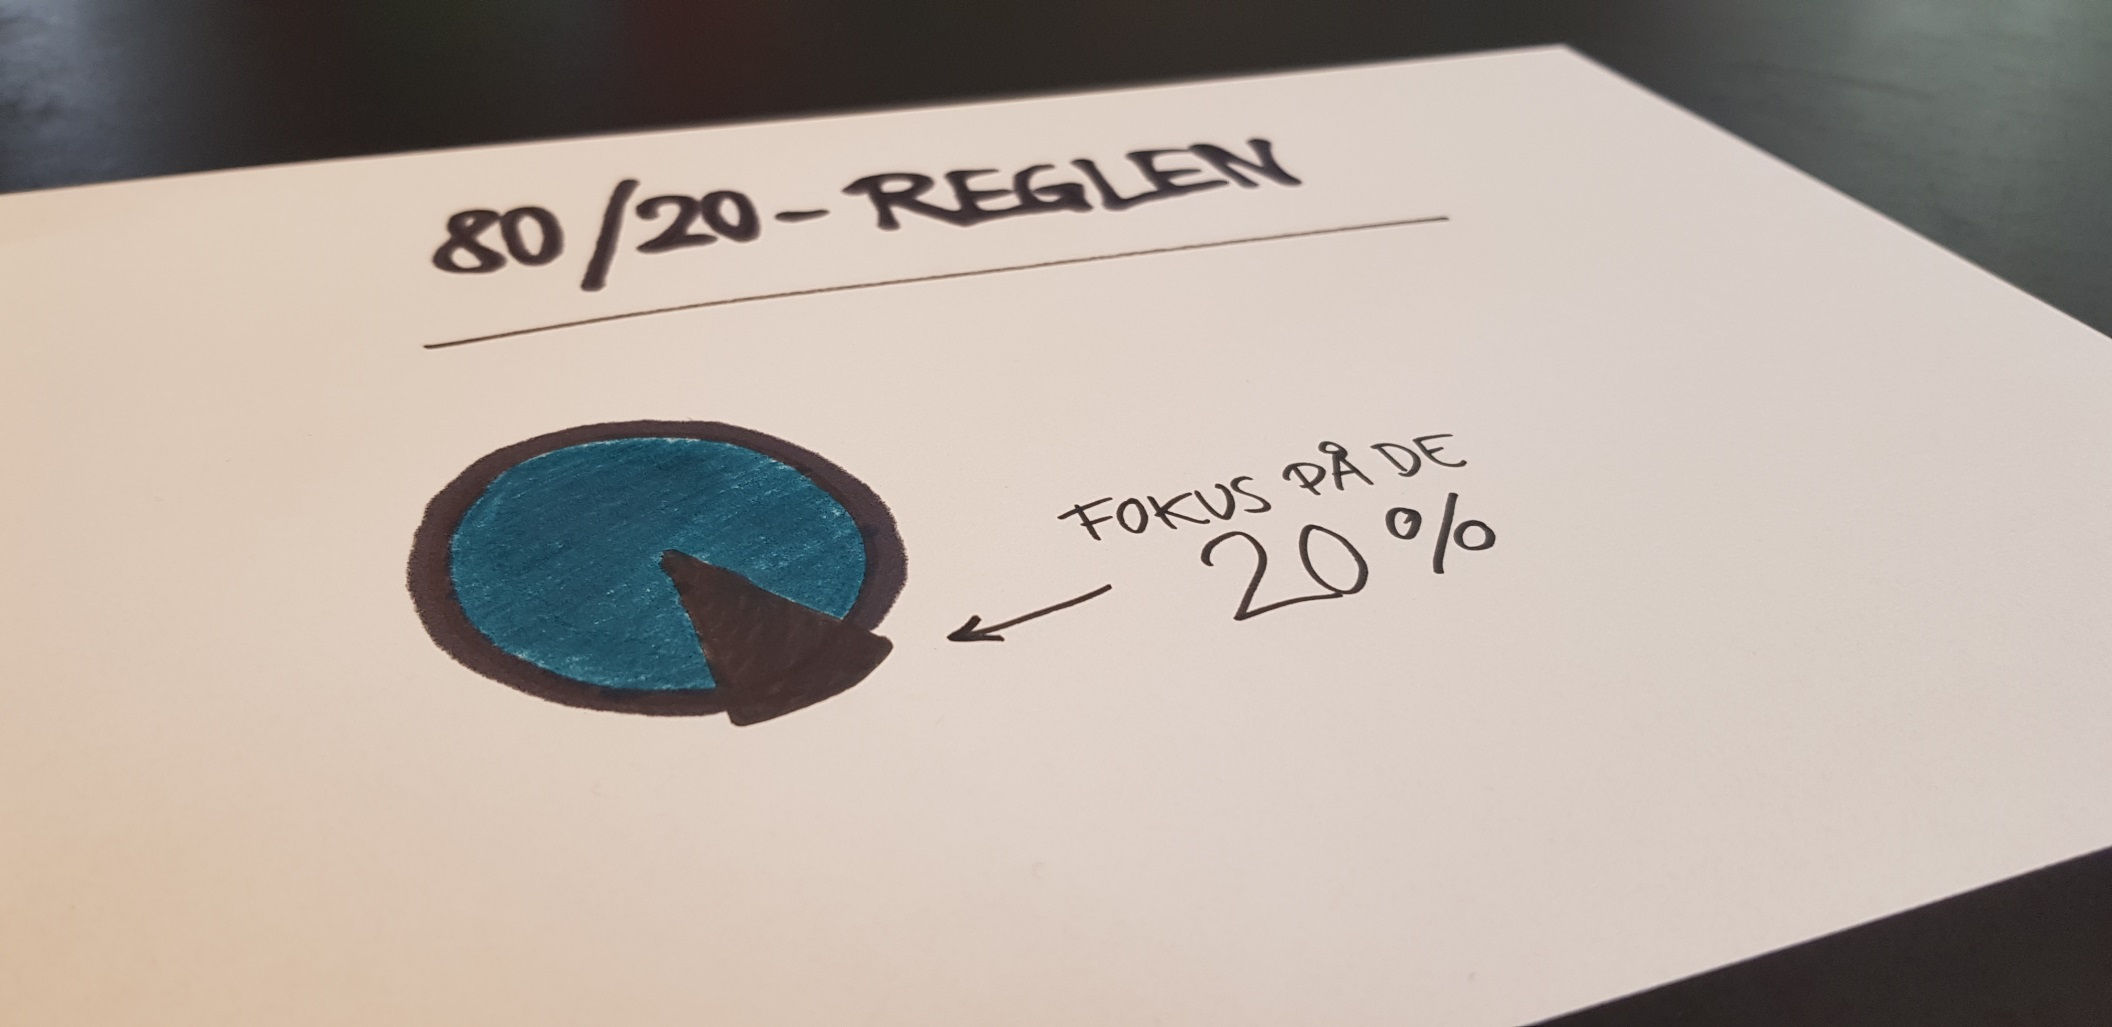 80/20-REGLEN
FOKUS PÅ DE
20%